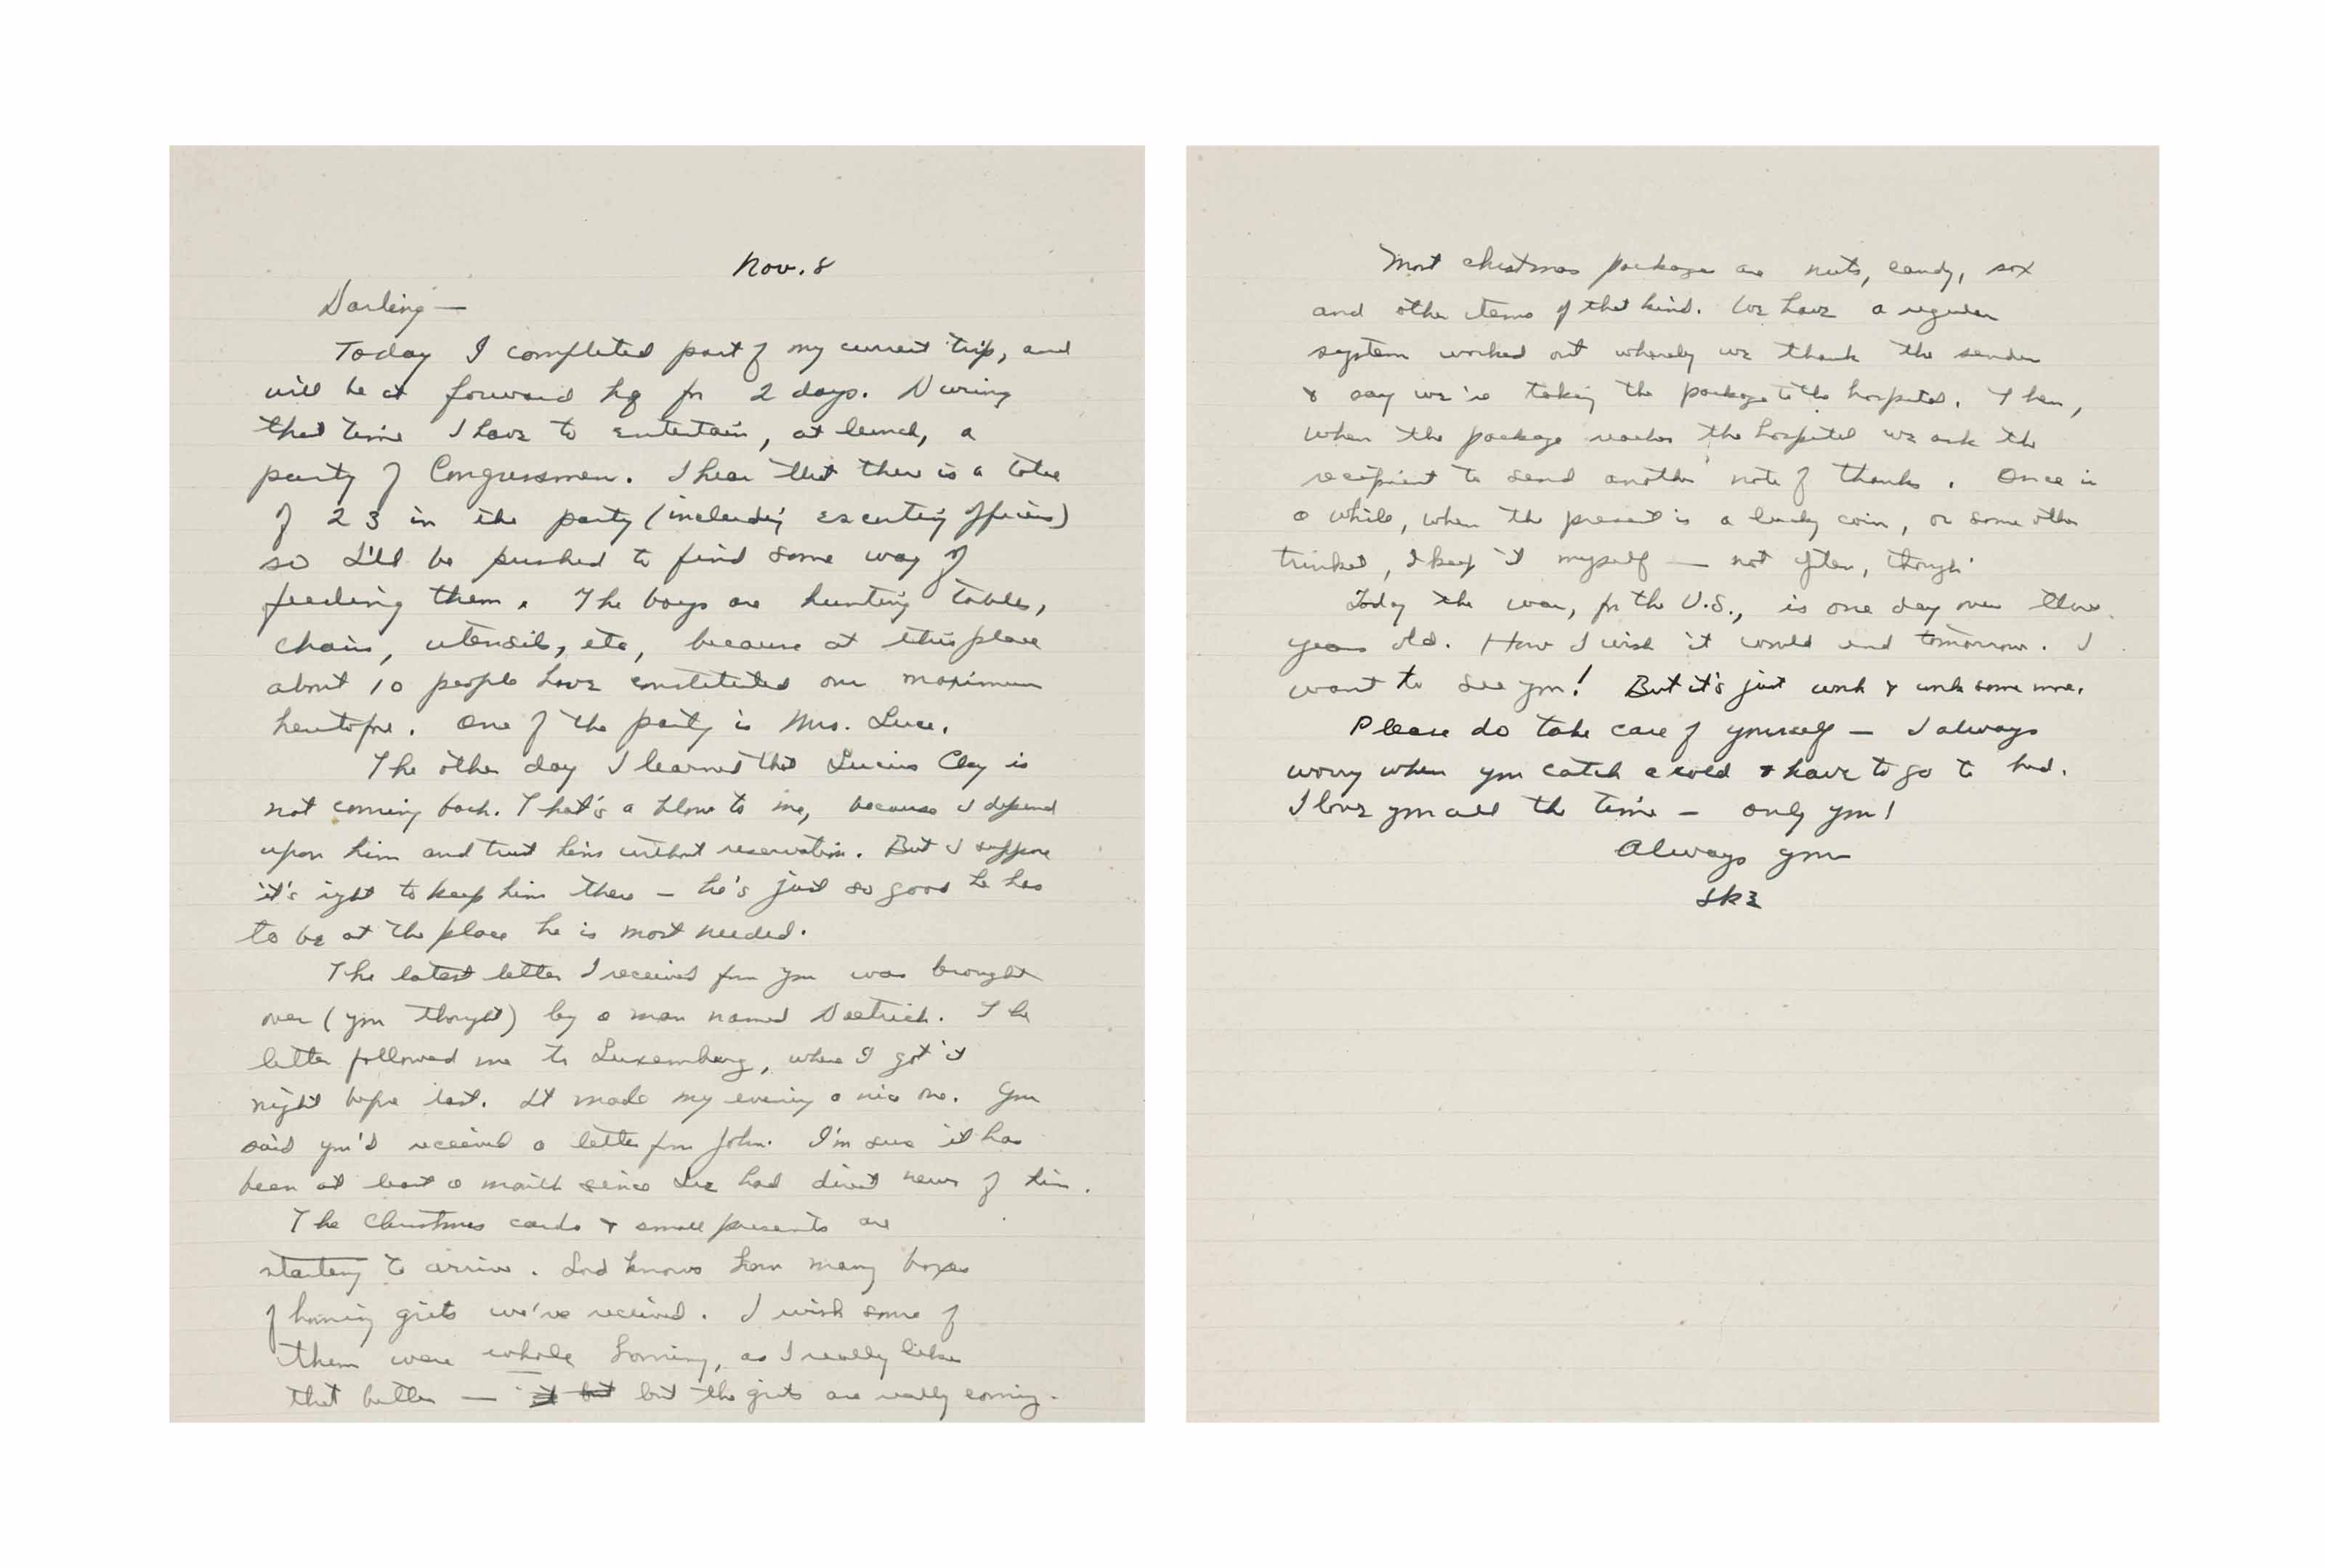 Nov. 8
Darling —
Today I completed part of my current trip, and
will be at forward hq for 2 days. During
that time I have to entertain, at lunch, a
party of Congressmen. I hear that there is a total
of 23 in the party (including executive officers)
so I'll be pushed to find some way of
feeding them. The boys are hunting tables,
chairs, utensils, etc, because at this place
about 10 people have constituted our maximum
heretofore. One of the party is Mrs. Luce.
The other day I learned that Lucius Clay is
not coming back. That's a blow to me, because I depend
upon him and trust him without reservation. But I suppose
it's right to keep him there — he's just so good he has
to be at the place he is most needed.
The latest letter I received from you was brought
over (you thought) by a man named Deetrich. The
letter followed me to Luxemburg, where I got it
night before last. It made my evening a nice one. You
said you'd received a letter from John. I'm sure it has
been at least a month since I've had direct news of him.
The Christmas cards & small presents are
starting to arrive. Lord knows how many boxes
of hominy grits we've received. I wish some of
them were whole hominy, as I really like
that better — but the grits are really coming.
Most christmas packages are nuts, candy, sox
and other items of that kind. We have a regular
system worked out whereby we thank the sender
& say we're taking the package to the hospital. Then,
when the package reaches the hospital we ask the
recipient to send another note of thanks. Once in
a while, when the present is a lucky coin, or some other
trinket, I keep it myself — not often, though.
Today the war, for the U.S., is one day over three
years old. How I wish it would end tomorrow. I
want to see you! But it's just work & work some more.
Please do take care of yourself — I always
worry when you catch a cold & have to go to bed.
I love you all the time — only you!
Always your
Ike